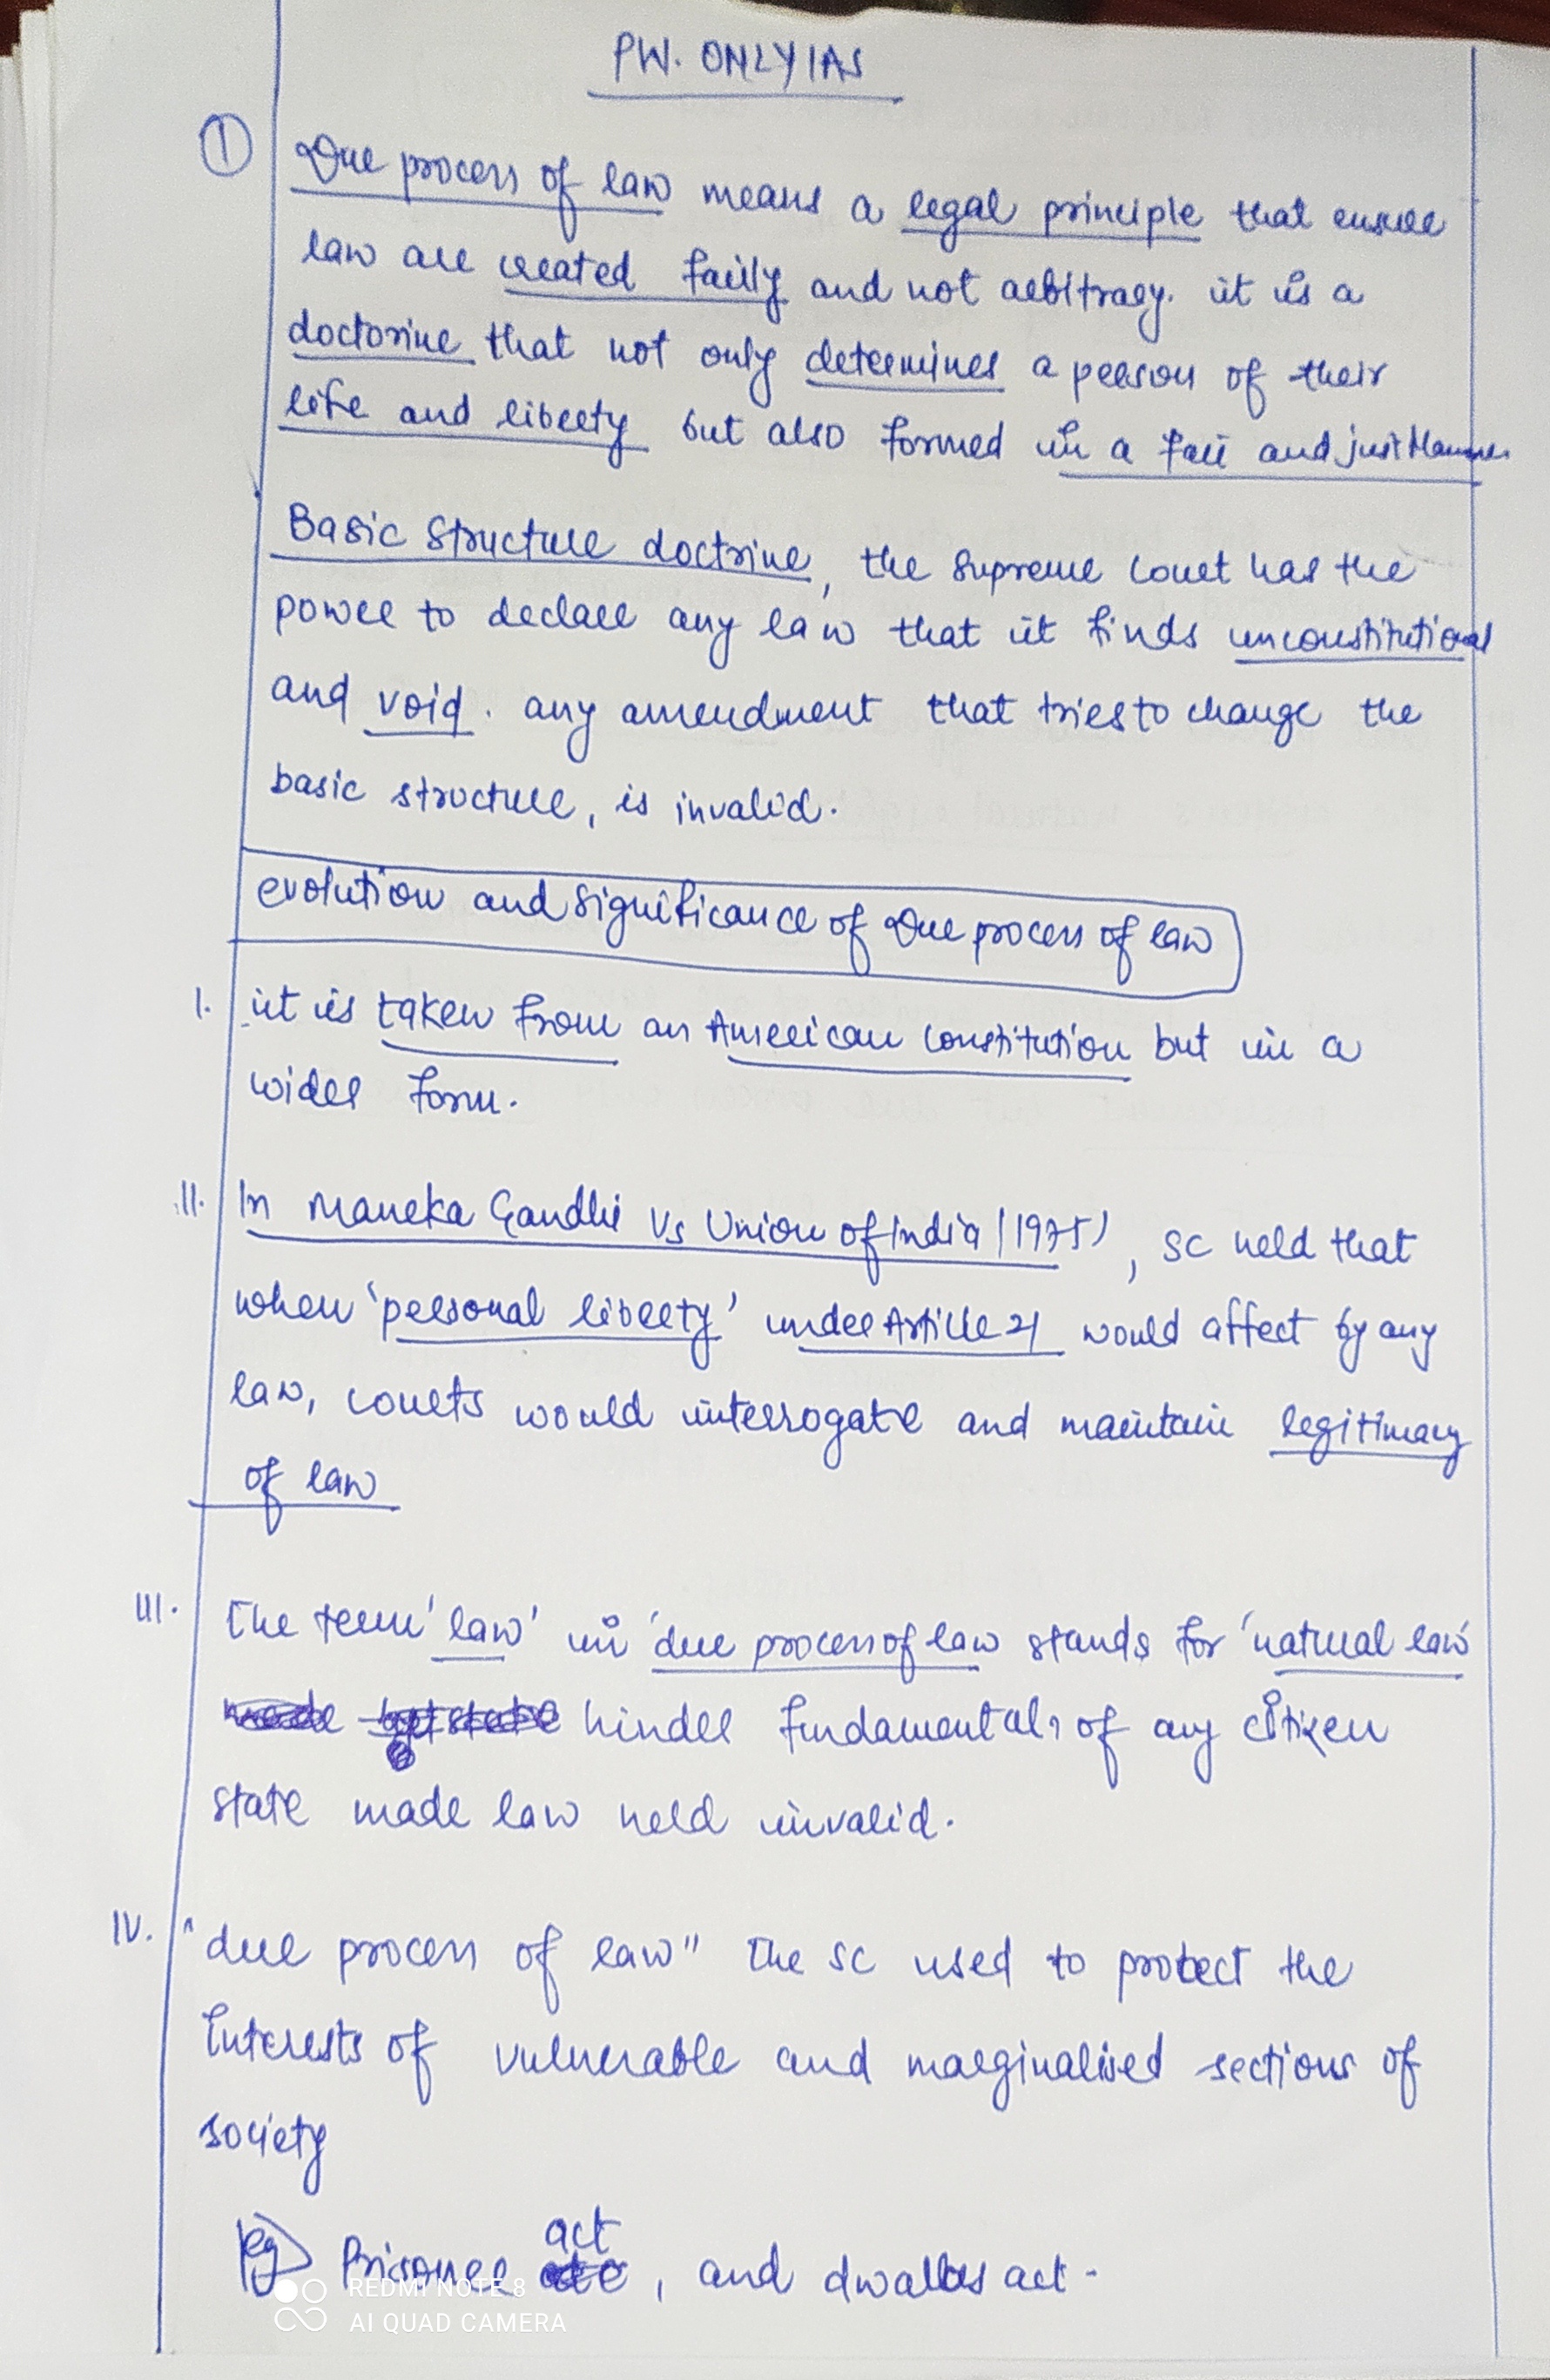 PW. ONLYIAS
① Due process of law means a legal principle that ensure
law are created fairly and not arbitrary. it is a
doctorine that not only determines a person of their
life and liberty but also formed in a fair and just Manner
Basic Structure doctrine, the Supreme Court has the
power to declare any law that it finds unconstitutional
and void. any amendment that tries to change the
basic structure, is invalid.
evolution and significance of Due process of law
I. it is taken from an American constitution but in a
wider form.
II. In Maneka Gandhi Vs Union of India (1975), SC held that
when 'personal liberty' under Article 21 would affect by any
law, courts would interrogate and maintain legitimacy
of law
III. The term 'law' in 'due process of law stands for 'natural law'
hinder fundamentals of any citizen
state made law held invalid.
IV. "due process of law" The SC used to protect the
Interests of vulnerable and marginalised sections of
society
eg> Prisoner act, and act.
REDMI NOTE 8
AI QUAD CAMERA